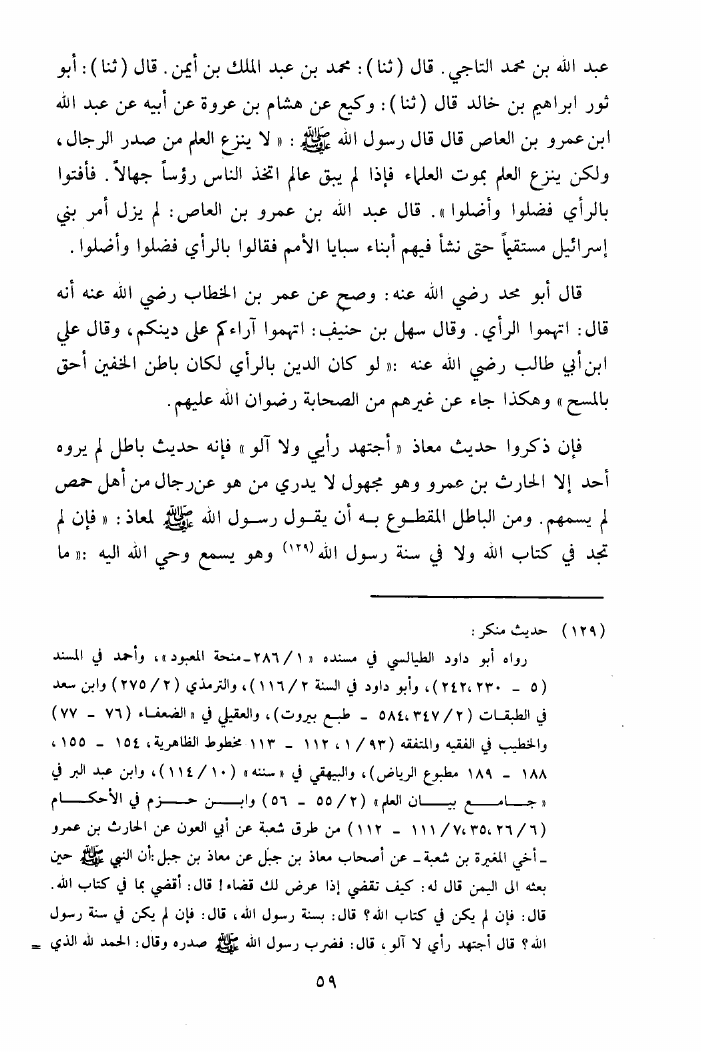 عبد الله بن محمد التاجي. قال (ثنا): محمد بن عبد الملك بن أيمن. قال (ثنا): أبو
ثور ابراهيم بن خالد قال (ثنا): وكيع عن هشام بن عروة عن أبيه عن عبد الله
ابن عمرو بن العاص قال قال رسول الله ﷺ : « لا ينزع العلم من صدر الرجال،
ولكن ينزع العلم بموت العلماء فإذا لم يبق عالم اتخذ الناس رؤساً جهالاً. فأفتوا
بالرأي فضلوا وأضلوا». قال عبد الله بن عمرو بن العاص: لم يزل أمر بني
إسرائيل مستقيماً حتى نشأ فيهم أبناء سبايا الأمم فقالوا بالرأي فضلوا وأضلوا.
قال أبو محمد رضي الله عنه: وصح عن عمر بن الخطاب رضي الله عنه أنه
قال: اتهموا الرأي. وقال سهل بن حنيف: اتهموا آراءكم على دينكم، وقال علي
ابن أبي طالب رضي الله عنه :« لو كان الدين بالرأي لكان باطن الخفين أحق
بالمسح» وهكذا جاء عن غيرهم من الصحابة رضوان الله عليهم.
فإن ذكروا حديث معاذ « أجتهد رأيي ولا آلو» فإنه حديث باطل لم يروه
أحد إلا الحارث بن عمرو وهو مجهول لا يدري من هو عن رجال من أهل حمص
لم يسمهم. ومن الباطل المقطوع به أن يقول رسول الله ﷺ لمعاذ: « فإن لم
تجد في كتاب الله ولا في سنة رسول الله(١٢٩) وهو يسمع وحي الله اليه :« ما
(١٢٩) حديث منكر:
رواه أبو داود الطيالسي في مسنده « ٢٨٦/١-منحة المعبود»، وأحمد في المسند
(٥ - ٢٤٢،٢٣٠)، وأبو داود في السنة ١١٦/٢)، والترمذي (٢٧٥/٢) وابن سعد
في الطبقات (٥٨٤،٣٤٧/٢ - طبع بيروت)، والعقيلي في « الضعفاء (٧٦ - ٧٧)
والخطيب في الفقيه والمتفقه (١/٩٣، ١١٢ - ١١٣ مخطوط الظاهرية، ١٥٤ - ١٥٥،
١٨٨ - ١٨٩ مطبوع الرياض)، والبيهقي في « سننه» (١١٤/١٠)، وابن عبد البر في
« جامع بيان العلم» (٥٥/٢ - ٥٦) وابن حزم في الأحكام
(٢٦/٦، ٣٥، ١١١/٧ - ١١٢) من طرق شعبة عن أبي العون عن الحارث بن عمرو
- أخي المغيرة بن شعبة- عن أصحاب معاذ بن جبل عن معاذ بن جبل: أن النبي ﷺ حين
بعثه الى اليمن قال له: كيف تقضي إذا عرض لك قضاء! قال: أقضي بما في كتاب الله.
قال: فإن لم يكن في كتاب الله؟ قال: بسنة رسول الله، قال: فإن لم يكن في سنة رسول
الله؟ قال أجتهد رأي لا آلو، قال: فضرب رسول الله ﷺ صدره وقال: الحمد لله الذي =
٥٩